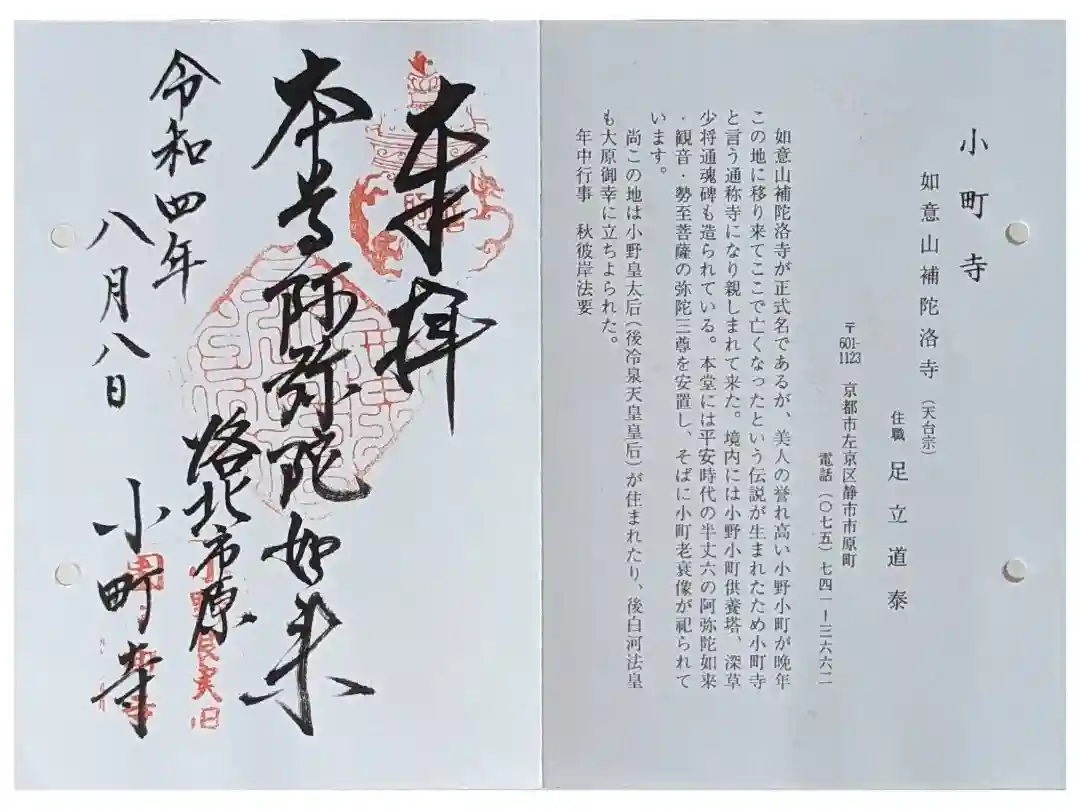 小町寺
如意山補陀洛寺（天台宗）
住職　足立道泰
〒601-1123　京都市左京区静市市原町
電話（〇七五）七四一ー三六六二
如意山補陀洛寺が正式名であるが、美人の誉れ高い小野小町が晩年
この地に移り来てここで亡くなったという伝説が生まれたため小町寺
と言う通称寺になり親しまれて来た。境内には小野小町供養塔、深草
少将通魂碑も造られている。本堂には平安時代の半丈六の阿弥陀如来
・観音・勢至菩薩の弥陀三尊を安置し、そばに小町老衰像が祀られて
います。
尚この地は小野皇太后（後冷泉天皇皇后）が住まれたり、後白河法皇
も大原御幸に立ちよられた。
年中行事　秋彼岸法要
奉拝
本尊阿弥陀如来
洛北市原
小町寺
令和四年
八月八日